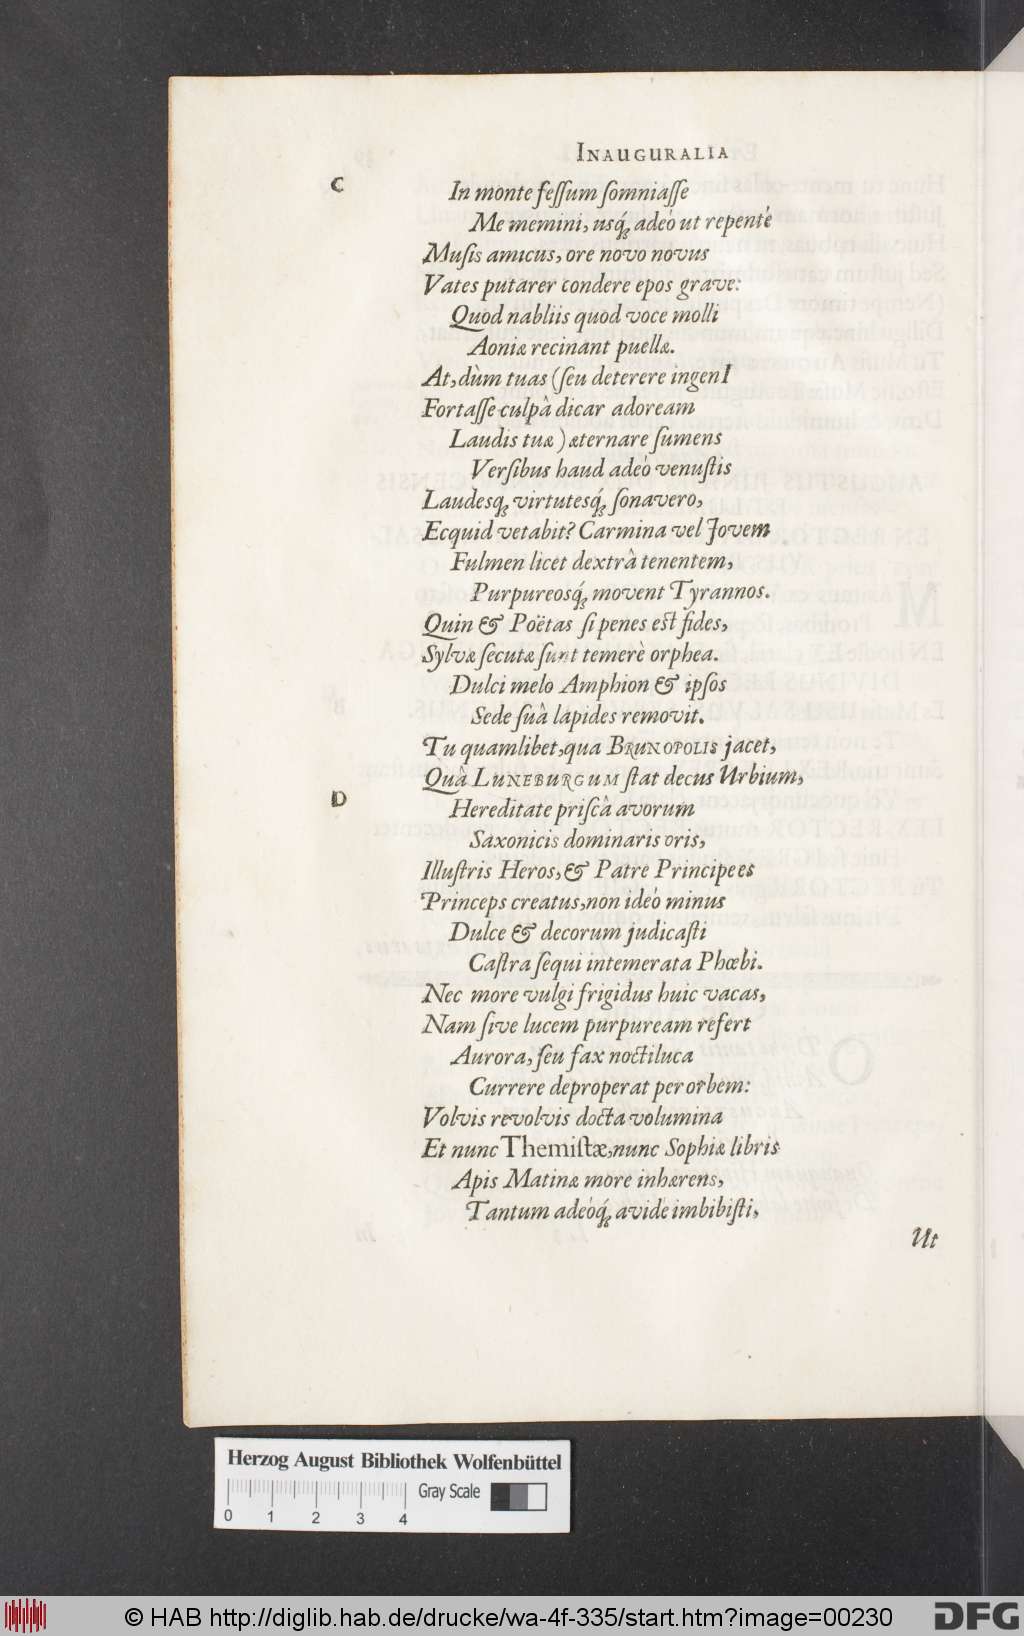 INAUGURALIA
C
In monte feſſum ſomniaſſe
Me memini, usq́; adeò ut repentè
Muſis amicus, ore novo novus
Vates putarer condere epos grave:
Quod nabliis quod voce molli
Aoniæ recinant puellæ.
At, dùm tuas (ſeu deterere ingenI
Fortaſſe culpâ dicar adoream
Laudis tuæ) æternare ſumens
Verſibus haud adeò venuſtis
Laudesq; virtutesq́; ſonavero,
Ecquid vetabit? Carmina vel Jovem
Fulmen licet dextrâ tenentem,
Purpureosq́; movent Tyrannos.
Quin & Poëtas ſi penes eſt fides,
Sylvæ ſecutæ ſunt temerè orphea.
Dulci melo Amphion & ipſos
Sede ſuâ lapides removit.
Tu quamlibet, qua BRUNOPOLIS jacet,
Quâ LUNEBURGUM ſtat decus Urbium,
D
Hereditate priſcâ avorum
Saxonicis dominaris oris,
Illuſtris Heros, & Patre Principe es
Princeps creatus, non ideò minus
Dulce & decorum judicaſti
Caſtra ſequi intemerata Phœbi.
Nec more vulgi frigidus huic vacas,
Nam ſive lucem purpuream refert
Aurora, ſeu fax noctiluca
Currere deproperat per orbem:
Volvis revolvis docta volumina
Et nunc Themiſtæ, nunc Sophiæ libris
Apis Matinæ more inhærens,
Tantum adeòq́; avidè imbibiſti,
Ut
Herzog August Bibliothek Wolfenbüttel
Gray Scale
0 1 2 3 4
© HAB http://diglib.hab.de/drucke/wa-4f-335/start.htm?image=00230
DFG